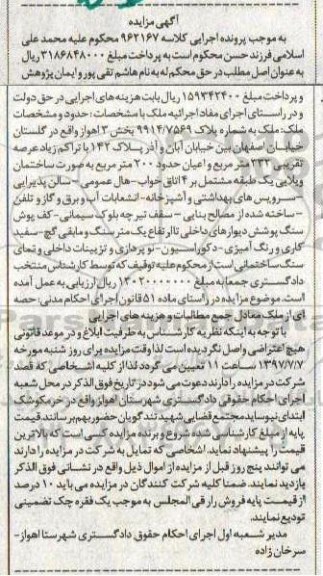 آگهی مزایده
به موجب پرونده اجرایی کلاسه ۹۶۲۱۶۷ محکوم علیه محمد علی
اسلامی فرزند حسن محکوم است به پرداخت مبلغ ۳۱۸۶۸۴۸۰۰۰ ریال
به عنوان اصل مطلب در حق محکوم له به نام هاشم تقی پور و ایمان پژوهش
و پرداخت مبلغ ۱۵۹۳۴۲۴۰۰ ریال بابت هزینه های اجرایی در حق دولت
و در راستای اجرای مفاد اجرائیه ملک با مشخصات: حدود و مشخصات
ملک: ملک به شماره پلاک ۹۹۱۴/۷۵۶۹ بخش ۳ اهواز واقع در گلستان
خیابان اصفهان بین خیابان آبان و آذر پلاک ۱۴۲ با تراکم زیاد عرصه
تقریبی ۲۳۲ متر مربع و اعیان حدود ۲۰۰ متر مربع به صورت ساختمان
ویلایی یک طبقه مشتمل بر ۴ اتاق خواب-هال عمومی - سالن پذیرایی
- سرویس های بهداشتی و آشپزخانه-انشعابات آب و برق و گاز و تلفن
- ساخته شده از مصالح بنایی - سقف تیرچه بلوک سیمانی- کف پوش
سنگ پوشش دیوارهای داخلی تا ارتفاع یک متر سنگ و مابقی گچ-سفید
کاری و رنگ آمیزی -دکوراسیون-نورپردازی و تزیینات داخلی و نمای
سنگ ساختمانی است از محکوم علیه توقیف که توسط کارشناس منتخب
دادگستری جمعا به مبلغ ۱۳۰۲۰۰۰۰۰۰۰ ریال ارزیابی به عمل آمده
است. موضوع مزایده در راستای ماده ۵۱ قانون اجرای احکام مدنی: حصه
ای از ملک معادل جمع مطالبات و هزینه های اجرایی
با توجه به اینکه نظریه کارشناس به طرفیت ابلاغ و در موعد قانونی
هیچ اعتراضی واصل نگردیده است لذا وقت مزایده برای روز شنبه مورخه
۱۳۹۷/۷/۷ ساعت ۱۱ تعیین می گردد لذا از کلیه اشخاصی که قصد
شرکت در مزایده را دارند دعوت می شود در تاریخ فوق الذکر در محل شعبه
اجرای احکام حقوقی دادگستری شهرستان اهواز واقع در خرمکوشک
ابتدای نیوساید مجتمع قضایی شهید تندگویان حضور بهم رسانند قیمت
پایه از مبلغ کارشناسی شده شروع و برنده مزایده کسی است که بالاترین
قیمت را پیشنهاد نماید. اشخاصی که تمایل به شرکت در مزایده را دارند
می توانند پنج روز قبل از مزایده از اموال ذیل واقع در نشانی فوق الذکر
بازدید نمایند. ضمنا کلیه شرکت کنندگان در مزایده می باید ۱۰ درصد
از قیمت پایه فروش را فی المجلس به موجب یک فقره چک تضمینی
تودیع نمایند.
مدیر شعبه اول اجرای احکام حقوق دادگستری شهرستا اهواز-
سرخان زاده